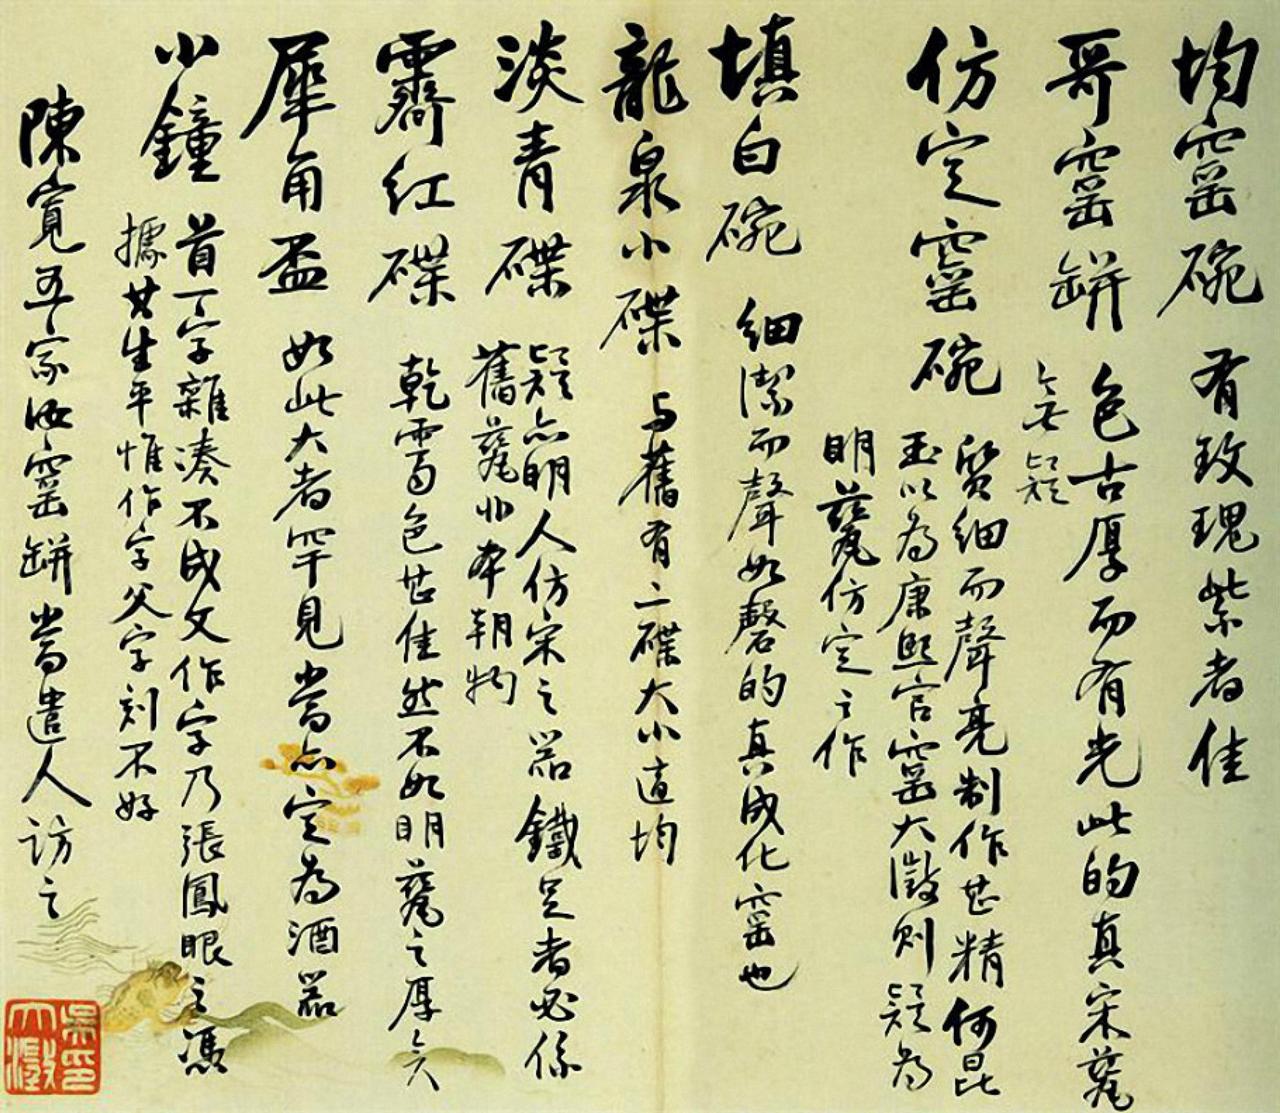 均窑碗 有玫瑰紫者佳
哥窑缾 色古厚而有光此的真宋甆
無疑
仿定窑碗 質細而聲亮制作甚精何昆
玉以為康熙官窑大澂則疑為
明甆仿定之作
填白碗 細潔而聲如磬的真成化窑也
龍泉小碟 与舊有二碟大小適均
淡青碟 疑亦明人仿宋之器鐵足者必係
舊甆非本朝物
霽红碟 乾雪色甚佳然不如明甆之厚矣
犀角盃 如此大者罕見當亦定為酒器
小鐘 首一字雜湊不成文作字乃張鳳眼之憑
據其生平惟作字父字刻不好
陳寬五家汝窑缾當遣人訪之
吳印大澂